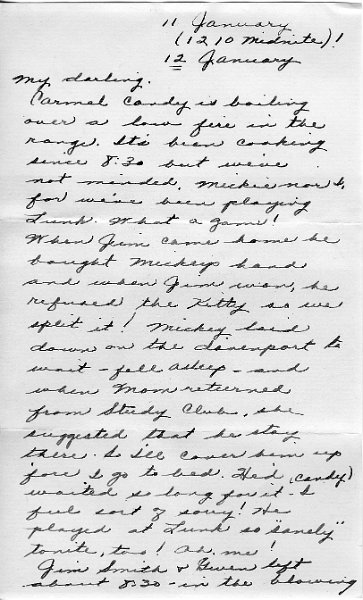 11 January
(12 10 midnite)!
12 January
My darling.
Carmel Candy is boiling
over a low fire in the
range. It's been cooking
since 8:30 but we've
not minded, Mickie nor I,
for we've been playing
Lunk. What a game!
When Jim came home he
bought Mickeys hand
and when Jim won, he
refused the Kitty so we
split it! Mickey laid
down on the davenport to
wait - fell asleep - and
when Mom returned
from Study Club, she
suggested that he stay
there. So I'll cover him up
fore I go to bed. He'd (candy)
waited so long for it - I
feel sort of sorry! He
played at Lunk so "sanely"
tonite, too! Ah, me!
Jim Smith & Gwen left
about 8:30 - in the blowing